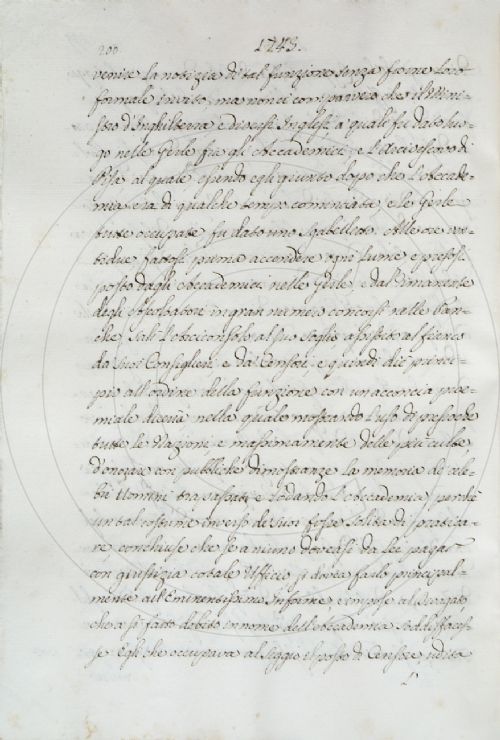 200
1743.
venire la notizia di tal funzione senza farne loro
formale invito, ma non ci comparvero che il Mini-
stro d'Inghilterra e diversi Inglesi, a' quali fu dato luo-
go nelle Gerle fra gli Accademici, e l'Arcivescovo di
Pisa al quale essendo egli giunto dopo che l'Accade-
mia era di qualche tempo cominciata e le Gerle
tutte occupate fu dato uno Sgabellotto. Alle ore
fattosi prima accendere ogni lume e presosi
posto dagli Accademici nelle Gerle, e dal rimanente
degli Ascoltatori in gran numero concorsi nelle Pan-
che, salì l'Arciconsolo al suo seggio assistito al fianco
da suoi Consiglieri e da' Censori, e quindi diè princi-
pio all'ordine della funzione con un'acconcia proe-
miale diceria nella quale mostrando l'uso di pressochè
tutte le Nazioni, e massimamente delle più culte
d'onorar con pubbliche dimostranze la memoria de' cele-
bri Uomini trapassati e lodando l'Accademia perchè
un tal costume inverso de' suoi fosse solita di pratica-
re, conchiuse che se a niuno doveasi da Lei pagar
con giustizia cotale Uffizio si dovea farlo principal-
mente all'Eminentissimo Infarine, e impose al
che a sì fatto debito in nome dell'Accademia soddisfaces-
se. Egli che occupava al Seggio il posto di Censore, udita